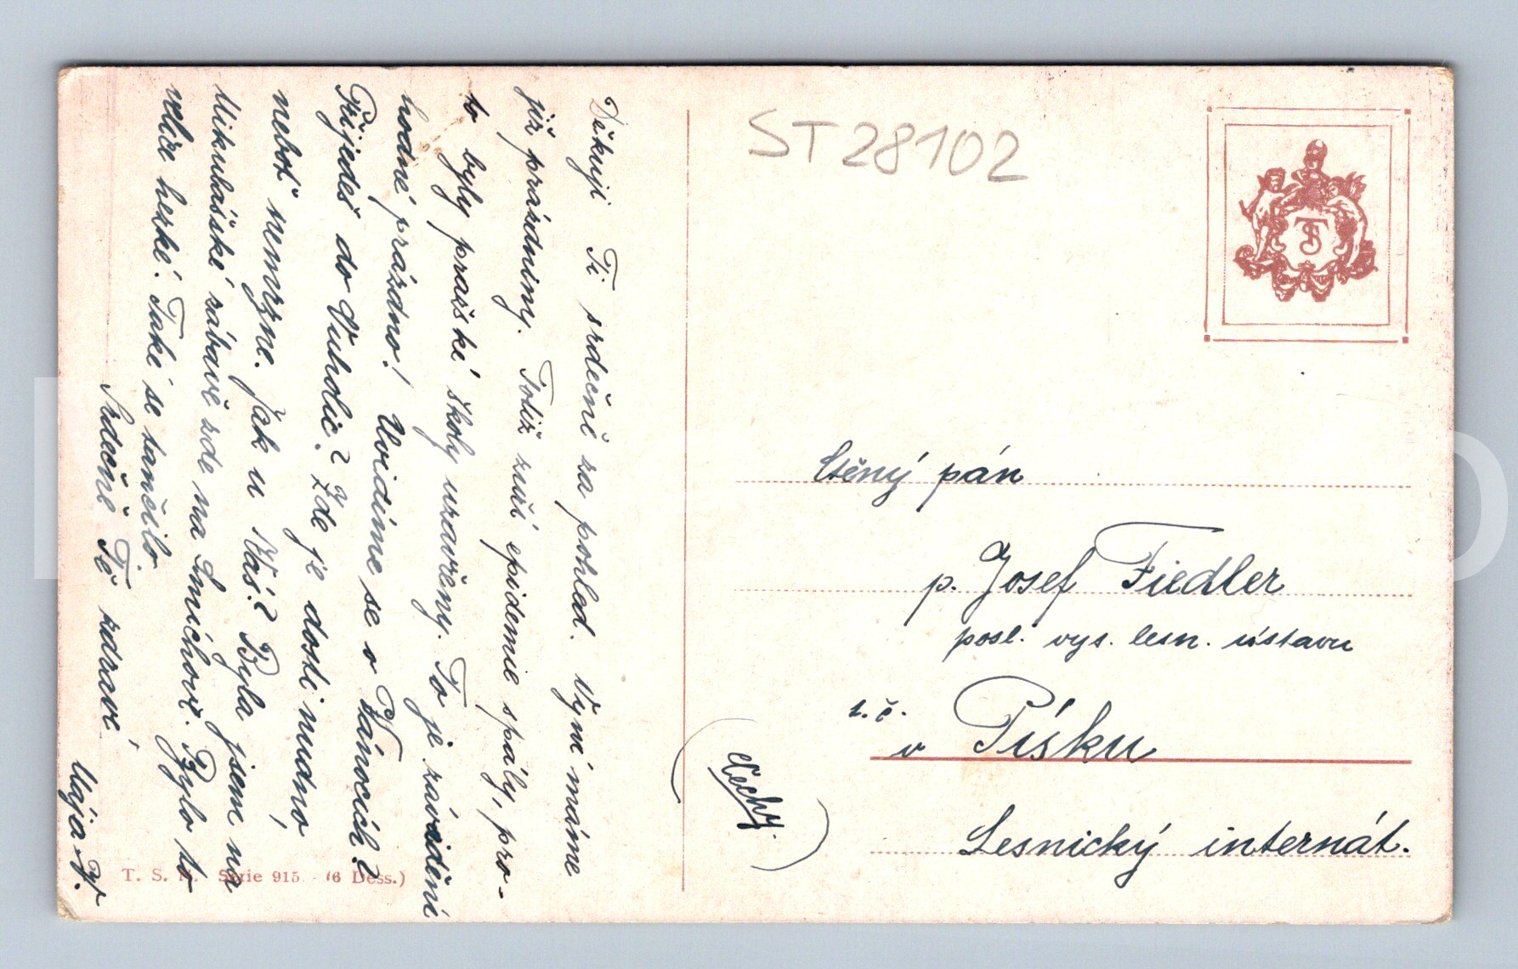 Děkuji Ti srdečně za pohled. Nyní máme
již prázdniny. Totiž zuří epidemie spály, pro-
to byly pražské školy uzavřeny. To je závidění
hodné prázdno! Uvidíme se o Vánocích?
Přijedeš do Vuholic? Zde je dosti nudno,
neboť nemrzne. Jak u Vás? Byla jsem na
Mikulášské zábavě zde na Smíchově. Bylo to
velice hezké. Také se tančilo
Srdečně Tě zdraví
Mája V.
T. S. N. Serie 915 (6 Dess.)
ST28102
TS
Ctěný pán
p. Josef Fiedler
posl. vys. lesn. ústavu
t. č.
v Písku
(Čechy)
Lesnický internát.